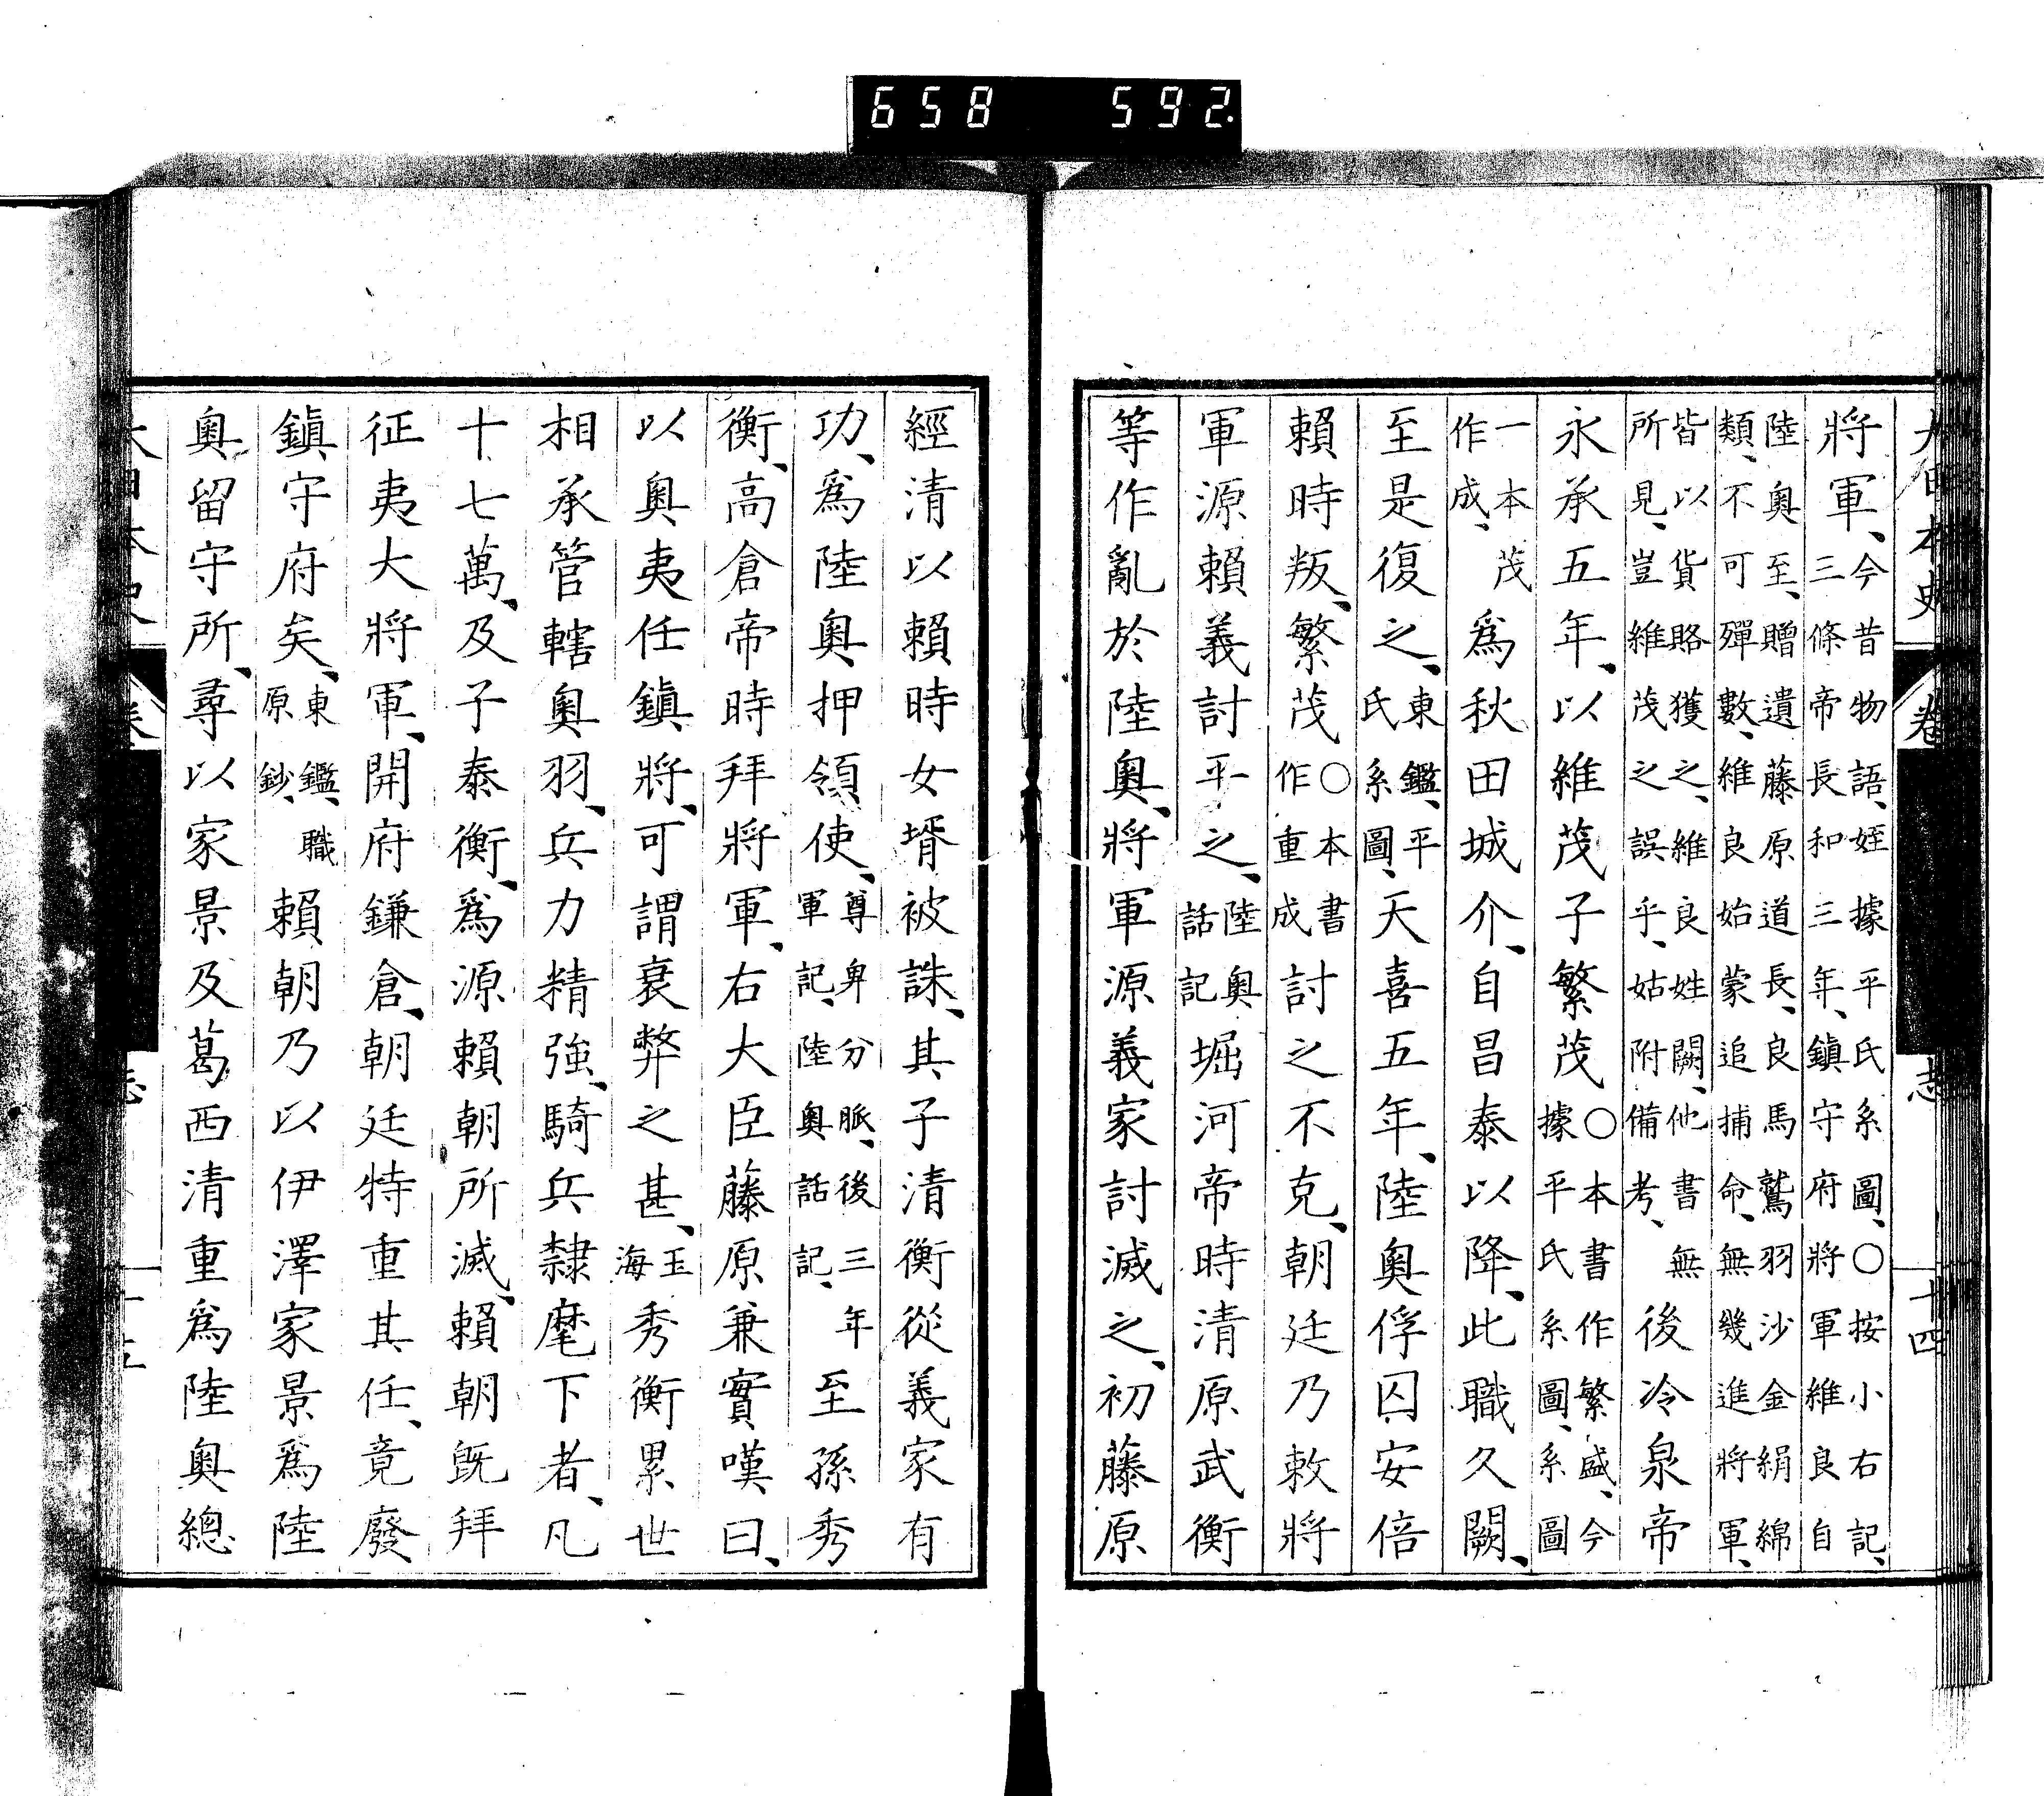 658 592.
大日本史 卷 志 十四
將軍、今昔物語、姪據平氏系圖、○按小右記、
三條帝長和三年、鎮守府將軍維良自
陸奧至、贈遺藤原道長、良馬鷲羽沙金絹綿
類、不可殫數、維良始蒙追捕命、無幾進將軍、
皆以貨賂獲之、維良姓闕、他書無
所見、豈維茂之誤乎、姑附備考、後冷泉帝
永承五年、以維茂子繁茂○本書作繁盛、今
據平氏系圖、系圖
一本茂
作成、爲秋田城介、自昌泰以降、此職久闕、
至是復之、東鑑、平
氏系圖、天喜五年、陸奧俘囚安倍
賴時叛、繁茂○本書
作重成討之不克、朝廷乃敕將
軍源賴義討平之、陸奧
話記堀河帝時清原武衡
等作亂於陸奧、將軍源義家討滅之、初藤原
經清以賴時女壻被誅、其子清衡從義家有
功、爲陸奧押領使、尊卑分脈、後三年
軍記、陸奧話記、至孫秀
衡、高倉帝時拜將軍、右大臣藤原兼實嘆曰、
以奧夷任鎮將、可謂衰弊之甚、玉
海秀衡累世
相承管轄奧羽、兵力精強、騎兵隸麾下者、凡
十七萬、及子泰衡、爲源賴朝所滅、賴朝既拜
征夷大將軍、開府鎌倉、朝廷特重其任、竟廢
鎮守府矣、東鑑、職
原鈔、賴朝乃以伊澤家景爲陸
奧留守所、尋以家景及葛西清重爲陸奧總